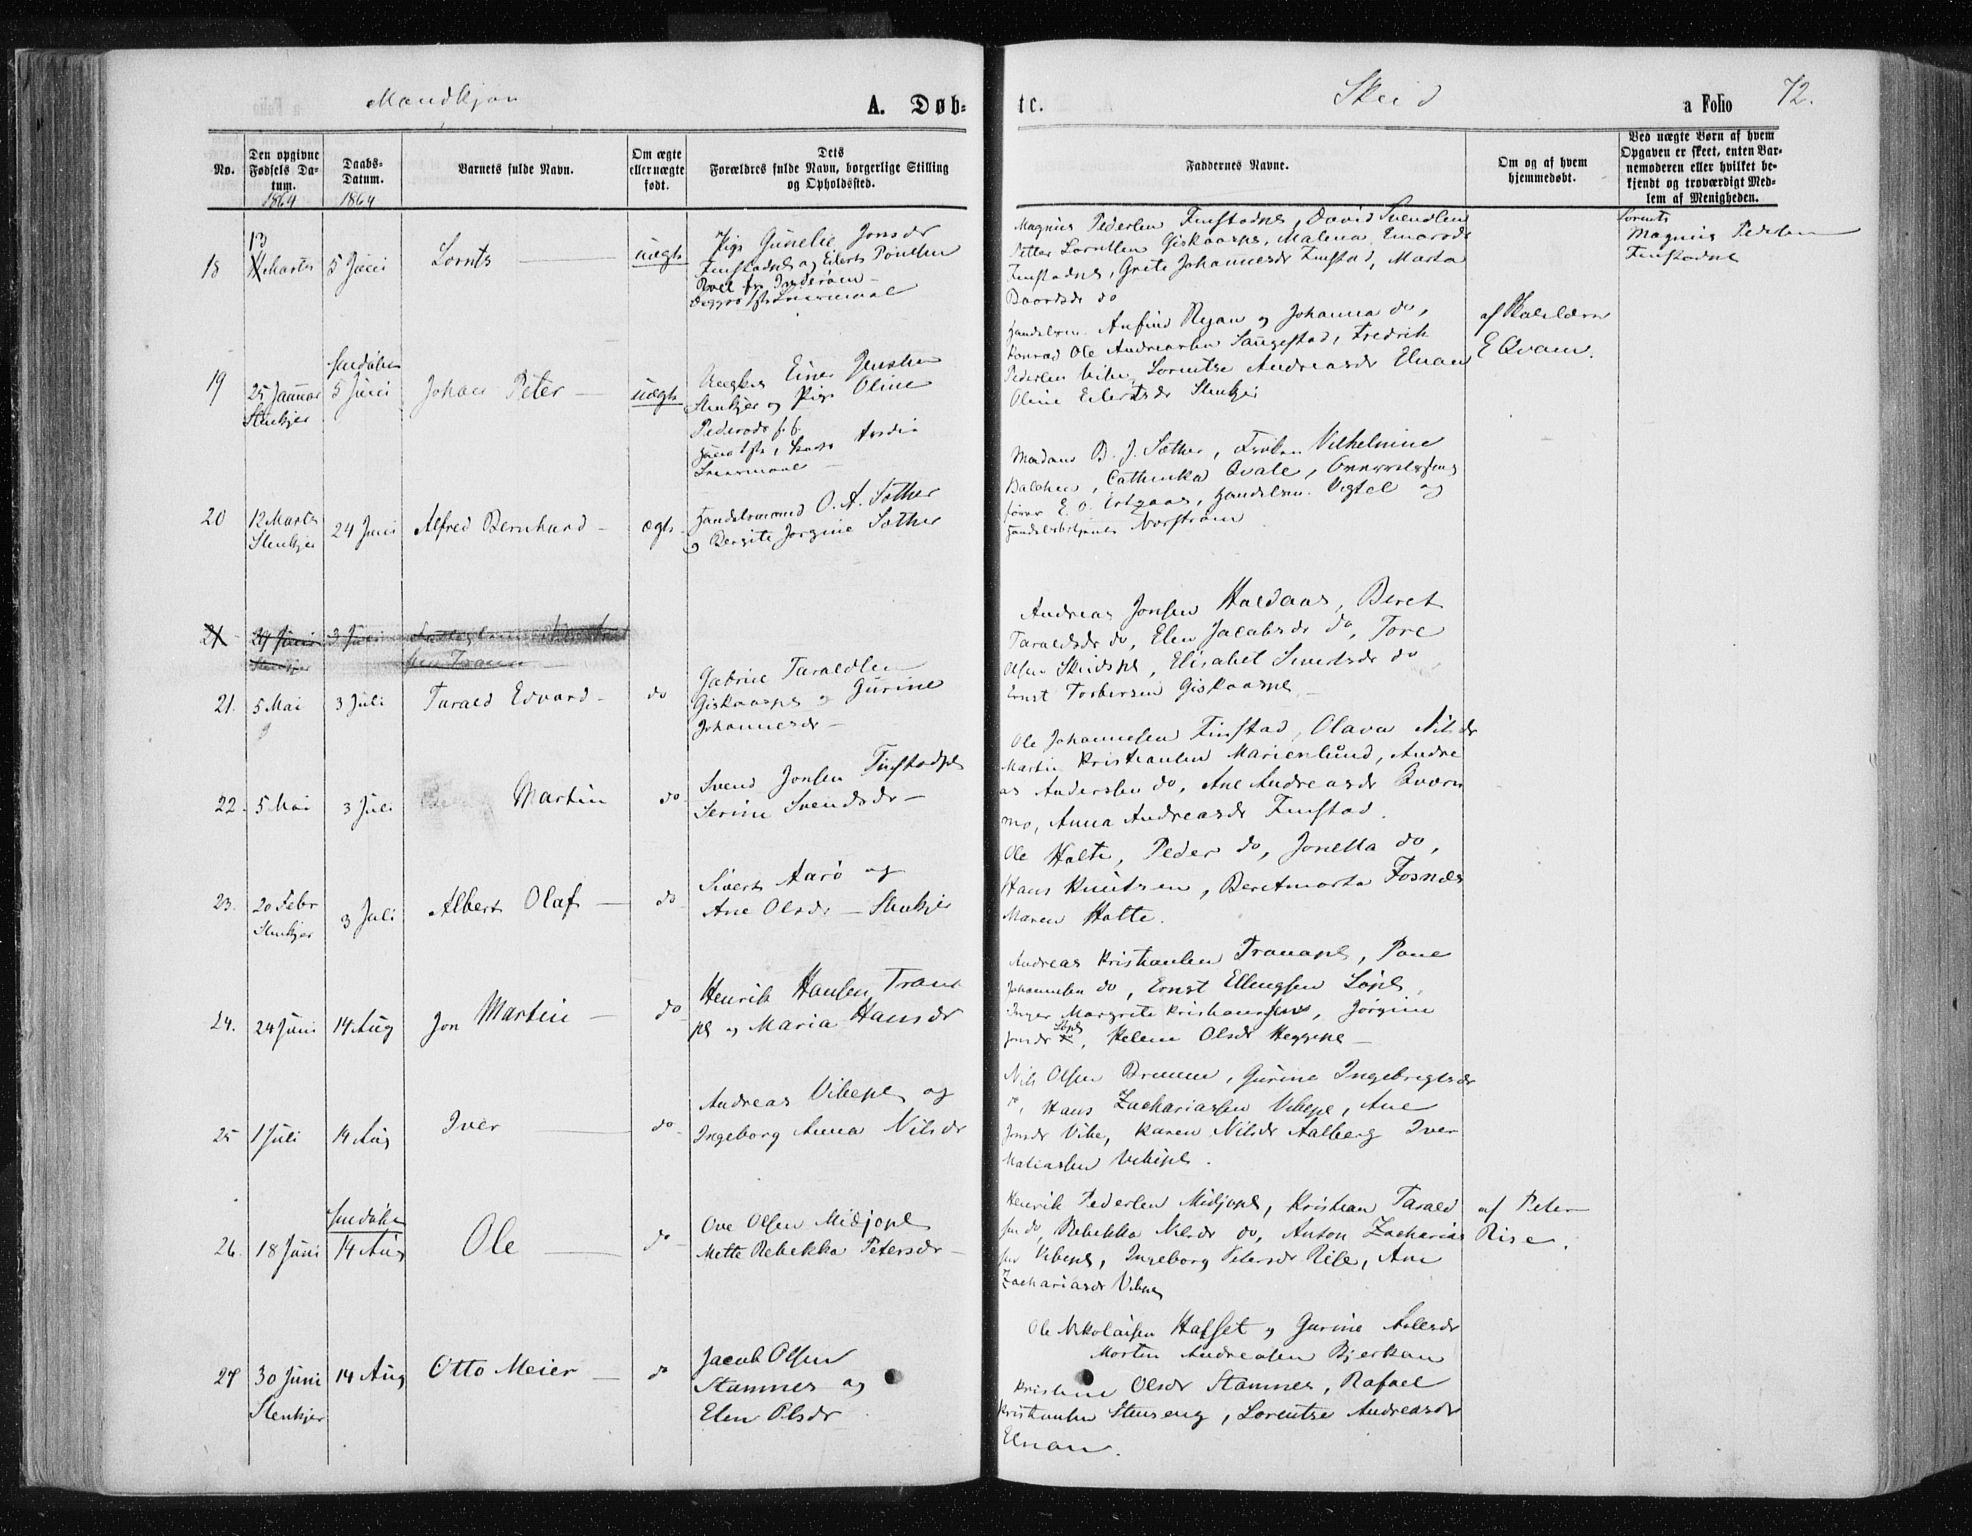 Mandkjøn
A. Døb-
te.
Skeid
a Folio 72.
No.
Den opgivne Fødsels Da-tum.
1864
Daabs-Datum.
1864
Barnets fulde Navn.
Om ægte eller uægte født.
Dets Forældres fulde Navn, borgerlige Stilling og Opholdssted.
Faddernes Navne.
Om og af hvem hjemmedøbt.
Ved uægte Børn af hvem Opgaven er skeet, enten Bar-nemoderen eller hvilket be-kjendt og troværdigt Med-lem af Menigheden.
18
13
Marts
5 Juni
Lornts
uægte
Pige Gunelie Jonsdr
Finstadpl og Eilert
fra Inderøen
Leiermaal
Magnus Pedersen Finstadpl, David Svendsen
Petter Lorntsen Giskaaspl, Malena
Finstadpl, Grete Johannesdr Finstad, Marta
Baardsdr do
Lorents
Magnus Pedersen
Finstadpl
19
25 Januar
Stenkjer
hmdøbt
5 Juni
Johan Peter
uægte
Ungkr Einer Jensen
Stenkjer og Pige Oline
Pedersdr
Leiermaal
Handelsm. Anfind Ryan og Johanna do,
Konrad Ole Andreassen Saugestad, Fredrik
Pedersen Vibe, Lorentse Andreasdr Elnan
Oline Eilertsdr Stenkjer
af Skolelærer
E Qvam.
20
12 Marts
Stenkjer
24 Juni
Alfred Bernhard
ægte
Handelsmand O. A. Sæther
og Bergite Jørgine Sæther
Madam B. J. Sæther, Frøken Vilhelmine
Balchen, Cathinka Qvale,
fører E. O. Ertzaas, Handelsm. Vigtel og
Handelsbetjent Norstrøm
21
29 Juni
Stenkjer
3 Juli
21.
5 Mai
3 Juli
Tarald Edvard
do
Gabriel Taraldsen
Giskaaspl og Gurine
Johannesdr
Andreas Jonsen Haldaas, Beret
Taraldsdr do, Elen Jacobsdr do, Tore
Olsen Skeidspl, Elisabet Sivertsdr do
Ernst Torbersen Giskaaspl
22.
5 Mai
3 Juli
Martin
do
Svend Jonsen Finstadpl
Serine Svendsdr
Ole Johannesen Finstad, Olava Nilsdr
Martin Kristiansen Marienlund, Andre
as Andersen do, Ane Andreasdr Qvern
mo, Anna Andreasdr Finstad.
23.
20 Febr
Stenkjer
3 Juli
Albert Olaf
do
Sivert Aarø og
Ane Olsdr Stenkjer
Ole Holte, Peder do, Jonetta do,
Hans Knutsen, Beretmarta Fosnæs
Maren Holte.
24.
24 Juni
14 Aug
Jon Martin
do
Henrik Hansen Trana
pl og Maria Hansdr
Andreas Kristiansen Tranapl, Pane
Johannesen do, Ernst Ellingsen Søpl,
Inger Margrete Kristiansen, Jørgine
Jonsdr Søpl, Helene Olsdr Heggepl
25
1 Juli
14 Aug
Iver
do
Andreas Vibepl og
Ingeborg Anna Nilsdr
Nils Olsen Bruem, Gurine Ingebrigtsdr
do, Hans Zachariassen Vibepl, Ane
Jonsdr Vibe, Karen Nilsdr Aalberg Iver
Matiassen Vibepl.
26.
18 Juni
hmdøbt
14 Aug
Ole
do
Ove Olsen Midjopl
Mette Rebekka Petersdr
Henrik Pedersen Midjopl, Kristian Tarald
sen do, Rebekka Nilsdr do, Anton Zacharias
sen Vibepl, Ingeborg Petersdr Rise, Ane
Zachariasdr Vibepl
af Peter
Rise.
27
30 Juni
Stenkjer
14 Aug
Otto Meier
do
Jacob Olsen
Stamnes og
Elen Olsdr
Ole Nikolaisen Hafset og Gurine Nilsdr
Morten Andreasen Bjerkan
Kristine Olsdr Stamnes, Rafael
Kristiansen Stenseng, Lorentse Andreasdr
Elnan.